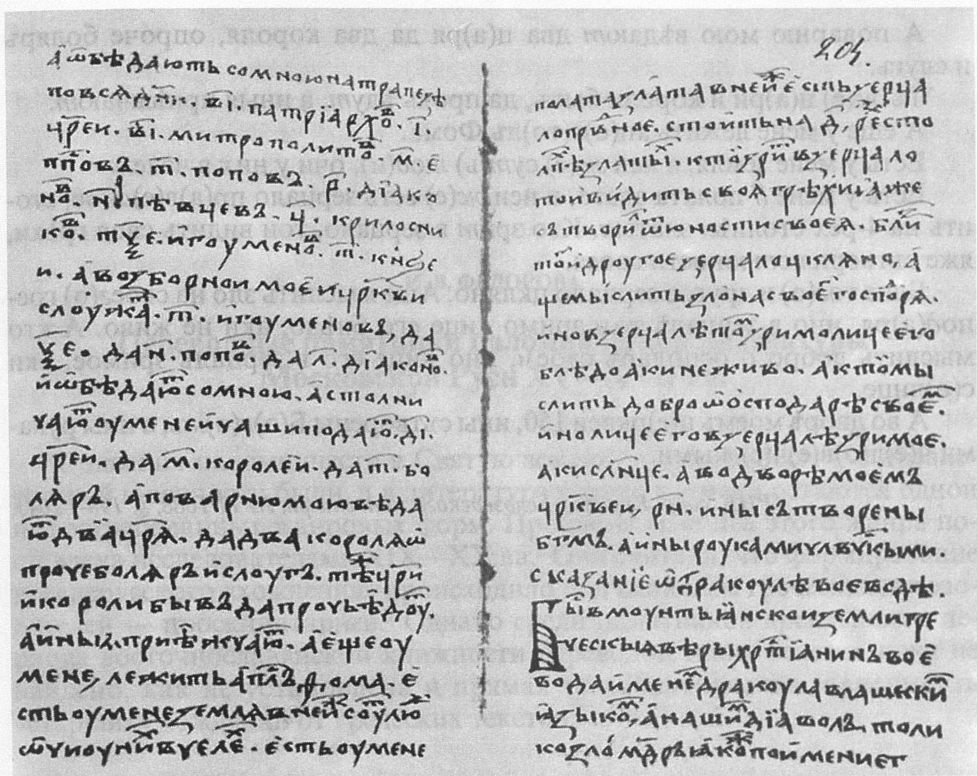 а ѡбѣдають со мною на трапезѣ
по вся дни. в҃і. патріархѡв. і҃.
ц҃реи. в҃і. митрополитъ. м҃е
попов. т҃. поповъ. р҃. діако
нъ. н҃. пѣвчевъ. ч҃. крилосни
кѡ. т҃ѯе. игоуменѡ. т҃. кнѕе
и. а въ зборнои моеи цр҃кви
слоужа. т҃. игоуменовъ, да
ѯ҃е. да н҃. попо. да л҃. діаконо.
и ѡбѣдаю со мною. а столни
чаю оу мене и чаши подаю. д҃і.
ц҃реи. да м҃. королеи. да т҃. бо
ляръ. а поварню мою вѣда
ю два ц҃ря. да два короля ѡ
проче боляръ и слоугъ. тѣ ц҃ри
и короли бывъ да прочь ѣдоу.
а иныи приѣжчаю. а еще оу
мене лежить ап҃лъ фома. е
сть оу мене земля в неи солю
ѡчи оу ни в челе. есть оу мене
204.
полата злата в неи есть зерца
ло прѣвное. стоить на д҃ре сто
лпѣ златы. кто зри в зерцало
тои видить своя грѣхи яже
сътвори ѡ юности своея. бли
тои дроугое зерцало цкляно. а
ще мыслить зло на своего госп҃ря.
ино в зерцалѣ то зрим лице его
блѣдо аки не живо. а кто мы
слить добро ѡ осподарѣ своем.
ино лице его в зерцалѣ зримое.
аки слн҃це. а во дворѣ моемъ
цр҃квеи, р҃н. ины сътворены
бг҃мъ. а ины роуками чл҃вчкыми.
Сказаніе ѡ дракоулѣ воеводѣ.
Бы в моунтьянскои земли гре
ческыа вѣры хр҃тіанинъ вое
вода именѣ дракоула влашески
языко, а наши діаволъ, толи
ко зломдръ якоже по имениег